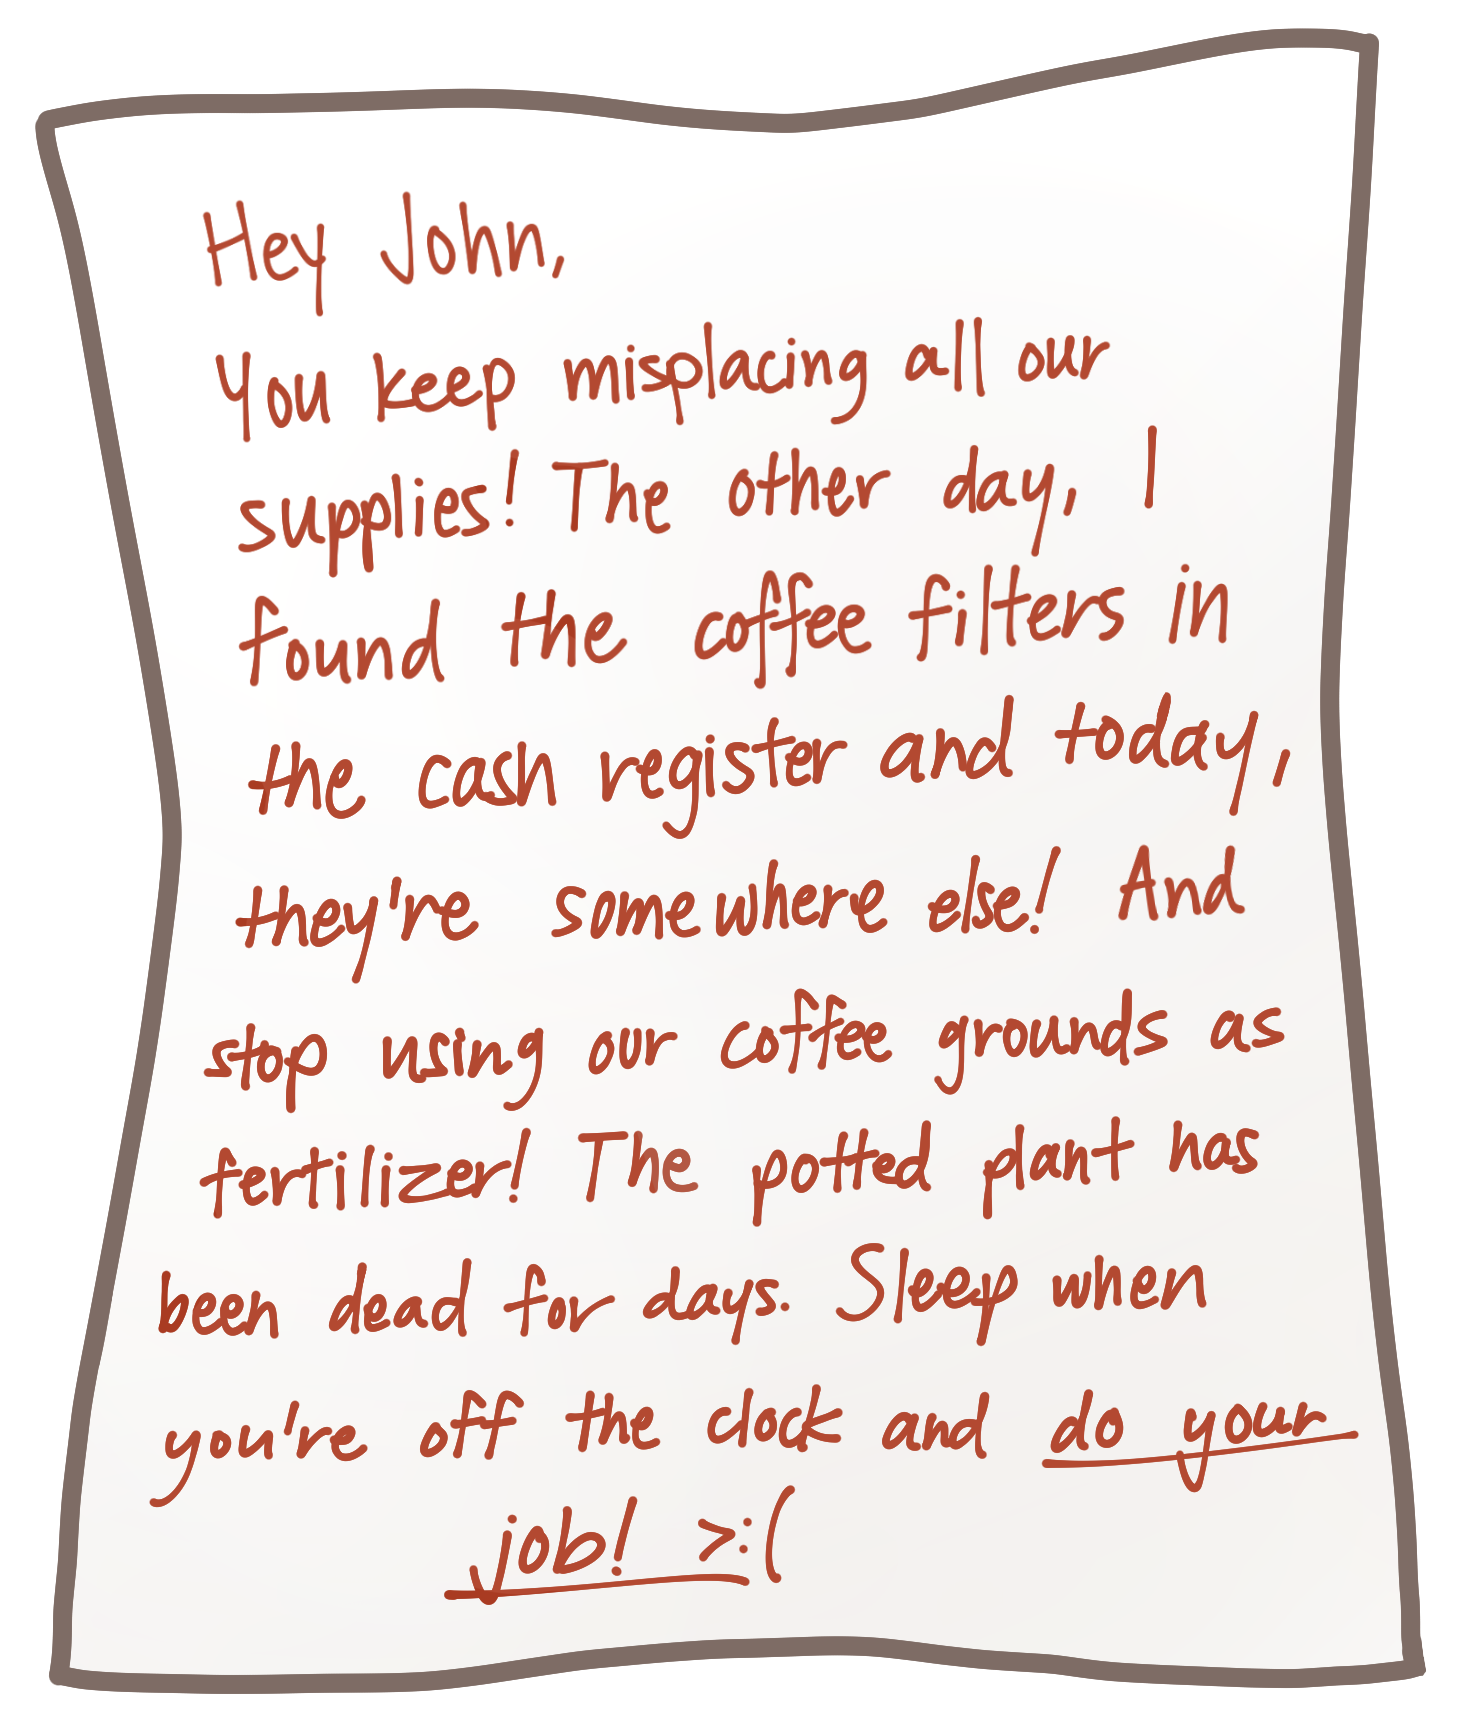 Hey John,
You keep misplacing all our
supplies! The other day, I
found the coffee filters in
the cash register and today,
they're somewhere else! And
stop using our coffee grounds as
fertilizer! The potted plant has
been dead for days. Sleep when
you're off the clock and do your
job! >:(